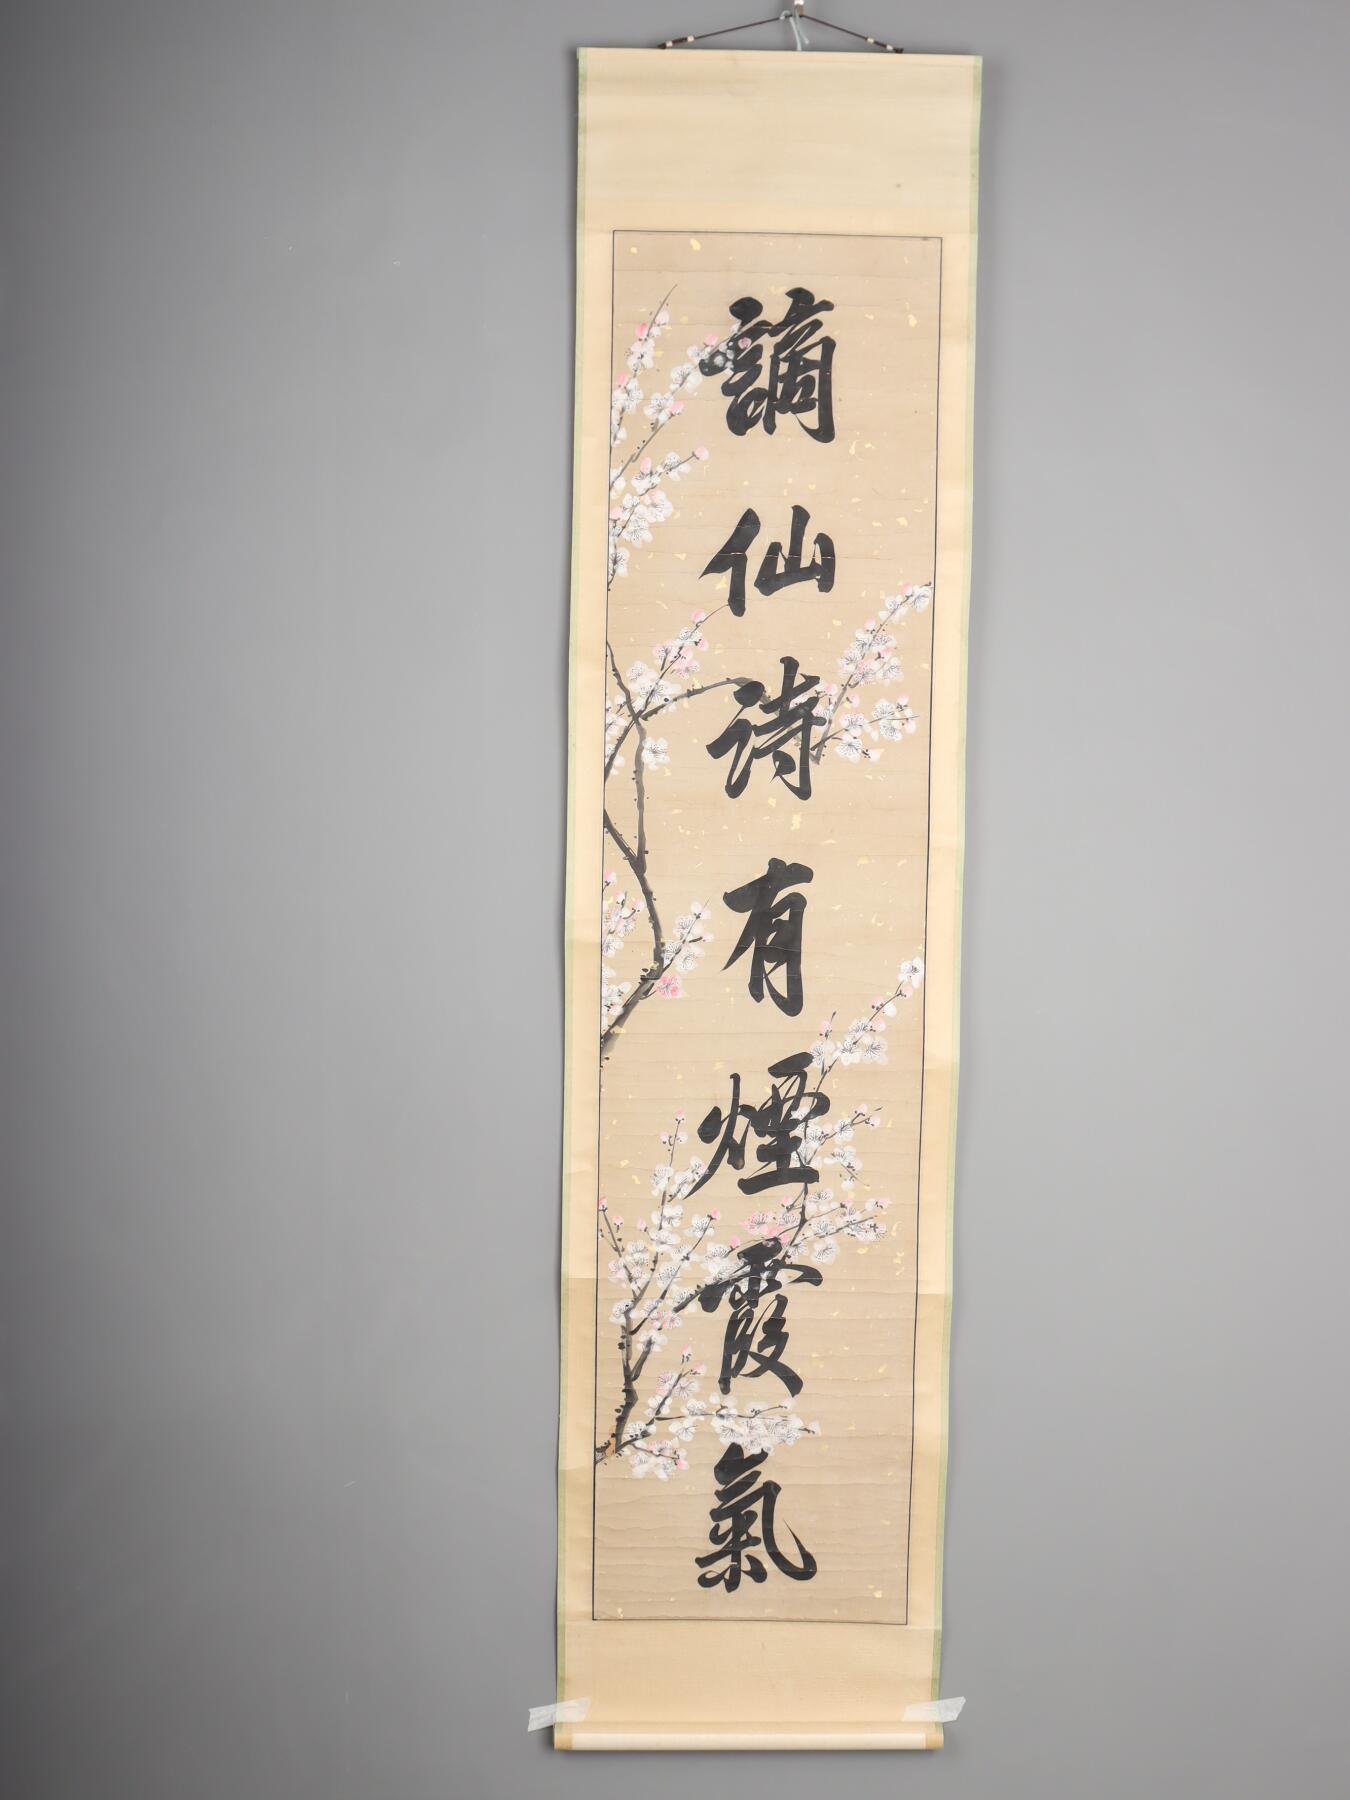 謫仙詩有煙霞氣